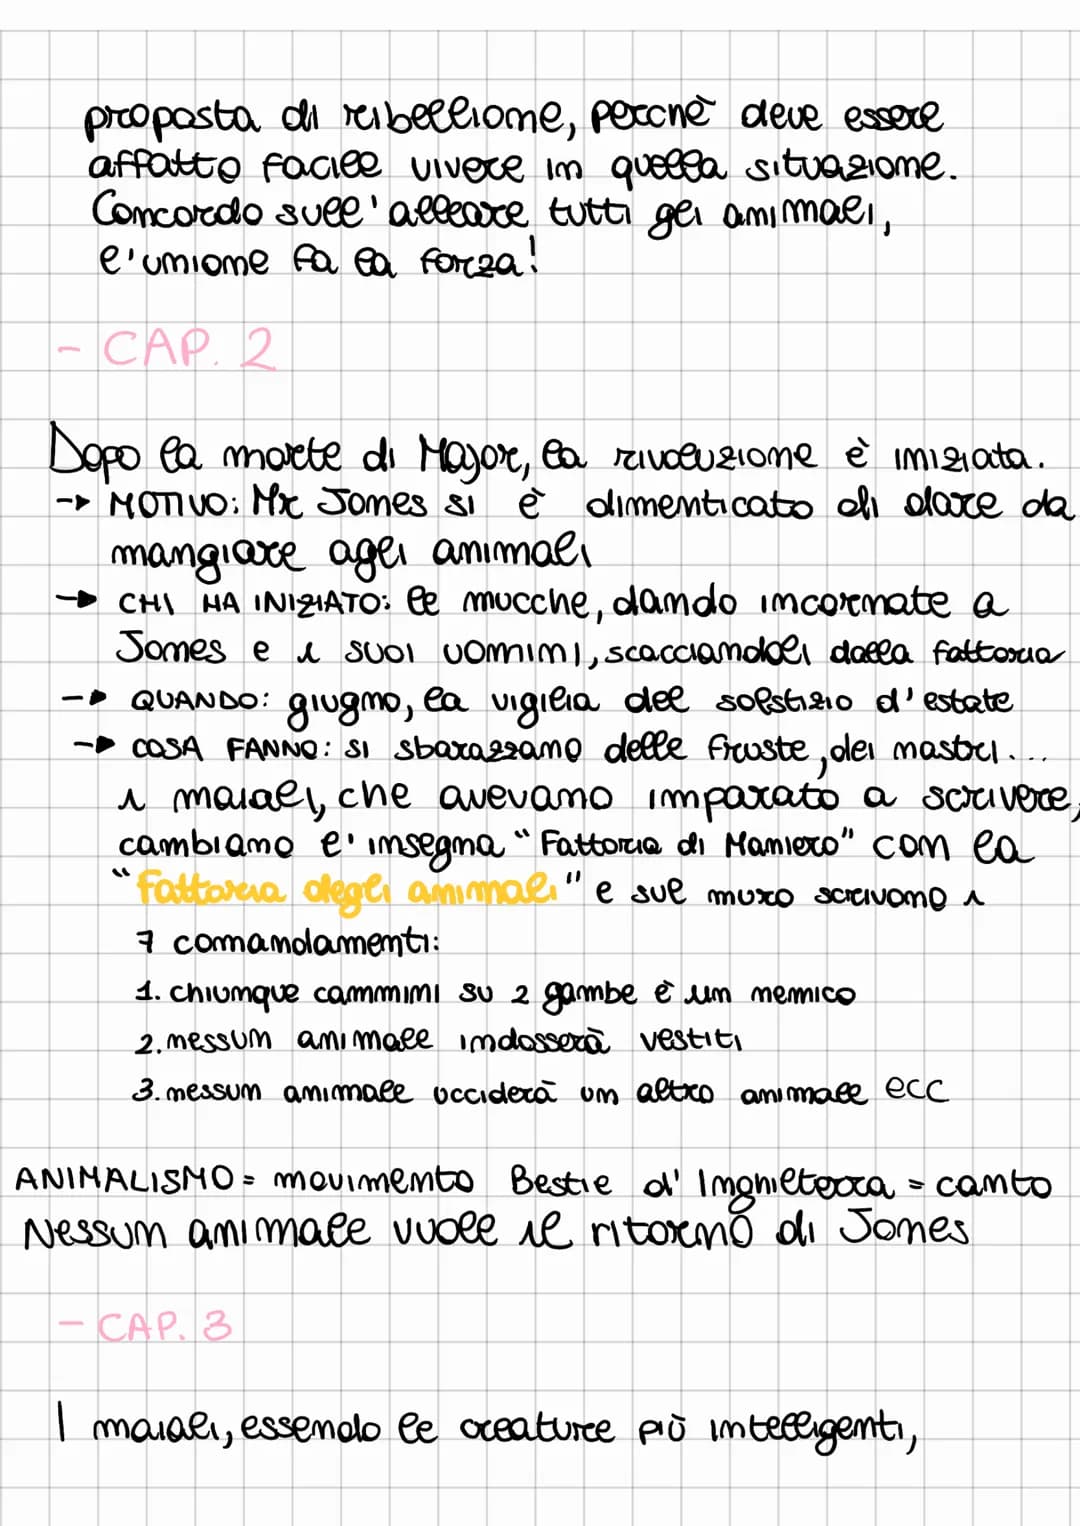 proposta di ribellione, perché deve essere
affatto facile vivere in quella situazione.
Concordo sull'alleare tutti gli animali,
l'unione fa la forza!
- CAP. 2
Dopo la morte di Major, la rivoluzione è iniziata.
→ MOTIVO: Mr Jones si è dimenticato di dare da
mangiare agli animali
→ CHI HA INIZIATO: le mucche, dando incornate a
Jones e i suoi uomini, scacciandoli dalla fattoria
→ QUANDO: giugno, la vigilia del solstizio d'estate
→ COSA FANNO: si sbarazzano delle fruste, dei nastri...
i maiali, che avevano imparato a scrivere,
cambiano l'insegna "Fattoria di Maniero" con la
"Fattoria degli animali" e sul muro scrivono i
7 comandamenti:
1. chiunque cammini su 2 gambe è un nemico
2. nessun animale indosserà vestiti
3. nessun animale ucciderà un altro animale ecc
ANIMALISMO = movimento Bestie d'Inghilterra = canto
Nessun animale vuole il ritorno di Jones
- CAP. 3
I maiali, essendo le creature più intelligenti,